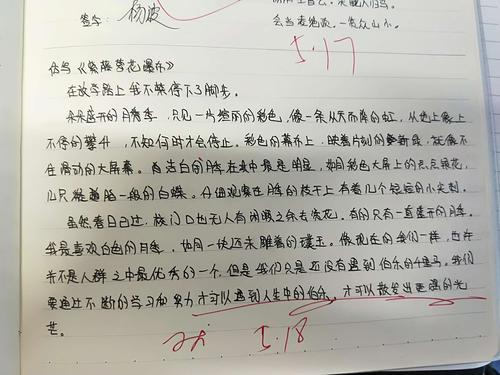 签字：杨波
会当凌绝顶，一览众山小。
5.17
仿写《紫藤萝花瀑布》
在放学路上我不禁停下了脚步。
朵朵盛开的月季，只见一片绚丽的彩色，像一条从天而降的虹，从地上爬上
不停的攀升，不知何时才会停止。彩色的幕布上，映着片刻的
住滑动的大屏幕。洁白的月季在其中最是明显，如同彩色大屏上的点点银花，
几只 一般的白蝶。仔细观察在月季的枝干上有着几个短短的小尖刺。
虽然春日已过，校门口也无人有闲暇之余去赏花。有的只有一直盛开的月季。
我最喜欢白色的月季，他同一块还未雕凿的璞玉。像现在的我们一样，也许
并不是人群之中最优秀的一个，但是我们只是还没有遇到伯乐的千里马。我们
要通过不断的学习和努力才可以遇到人生中的伯乐，才可以散发出更强的光
芒。
5.18